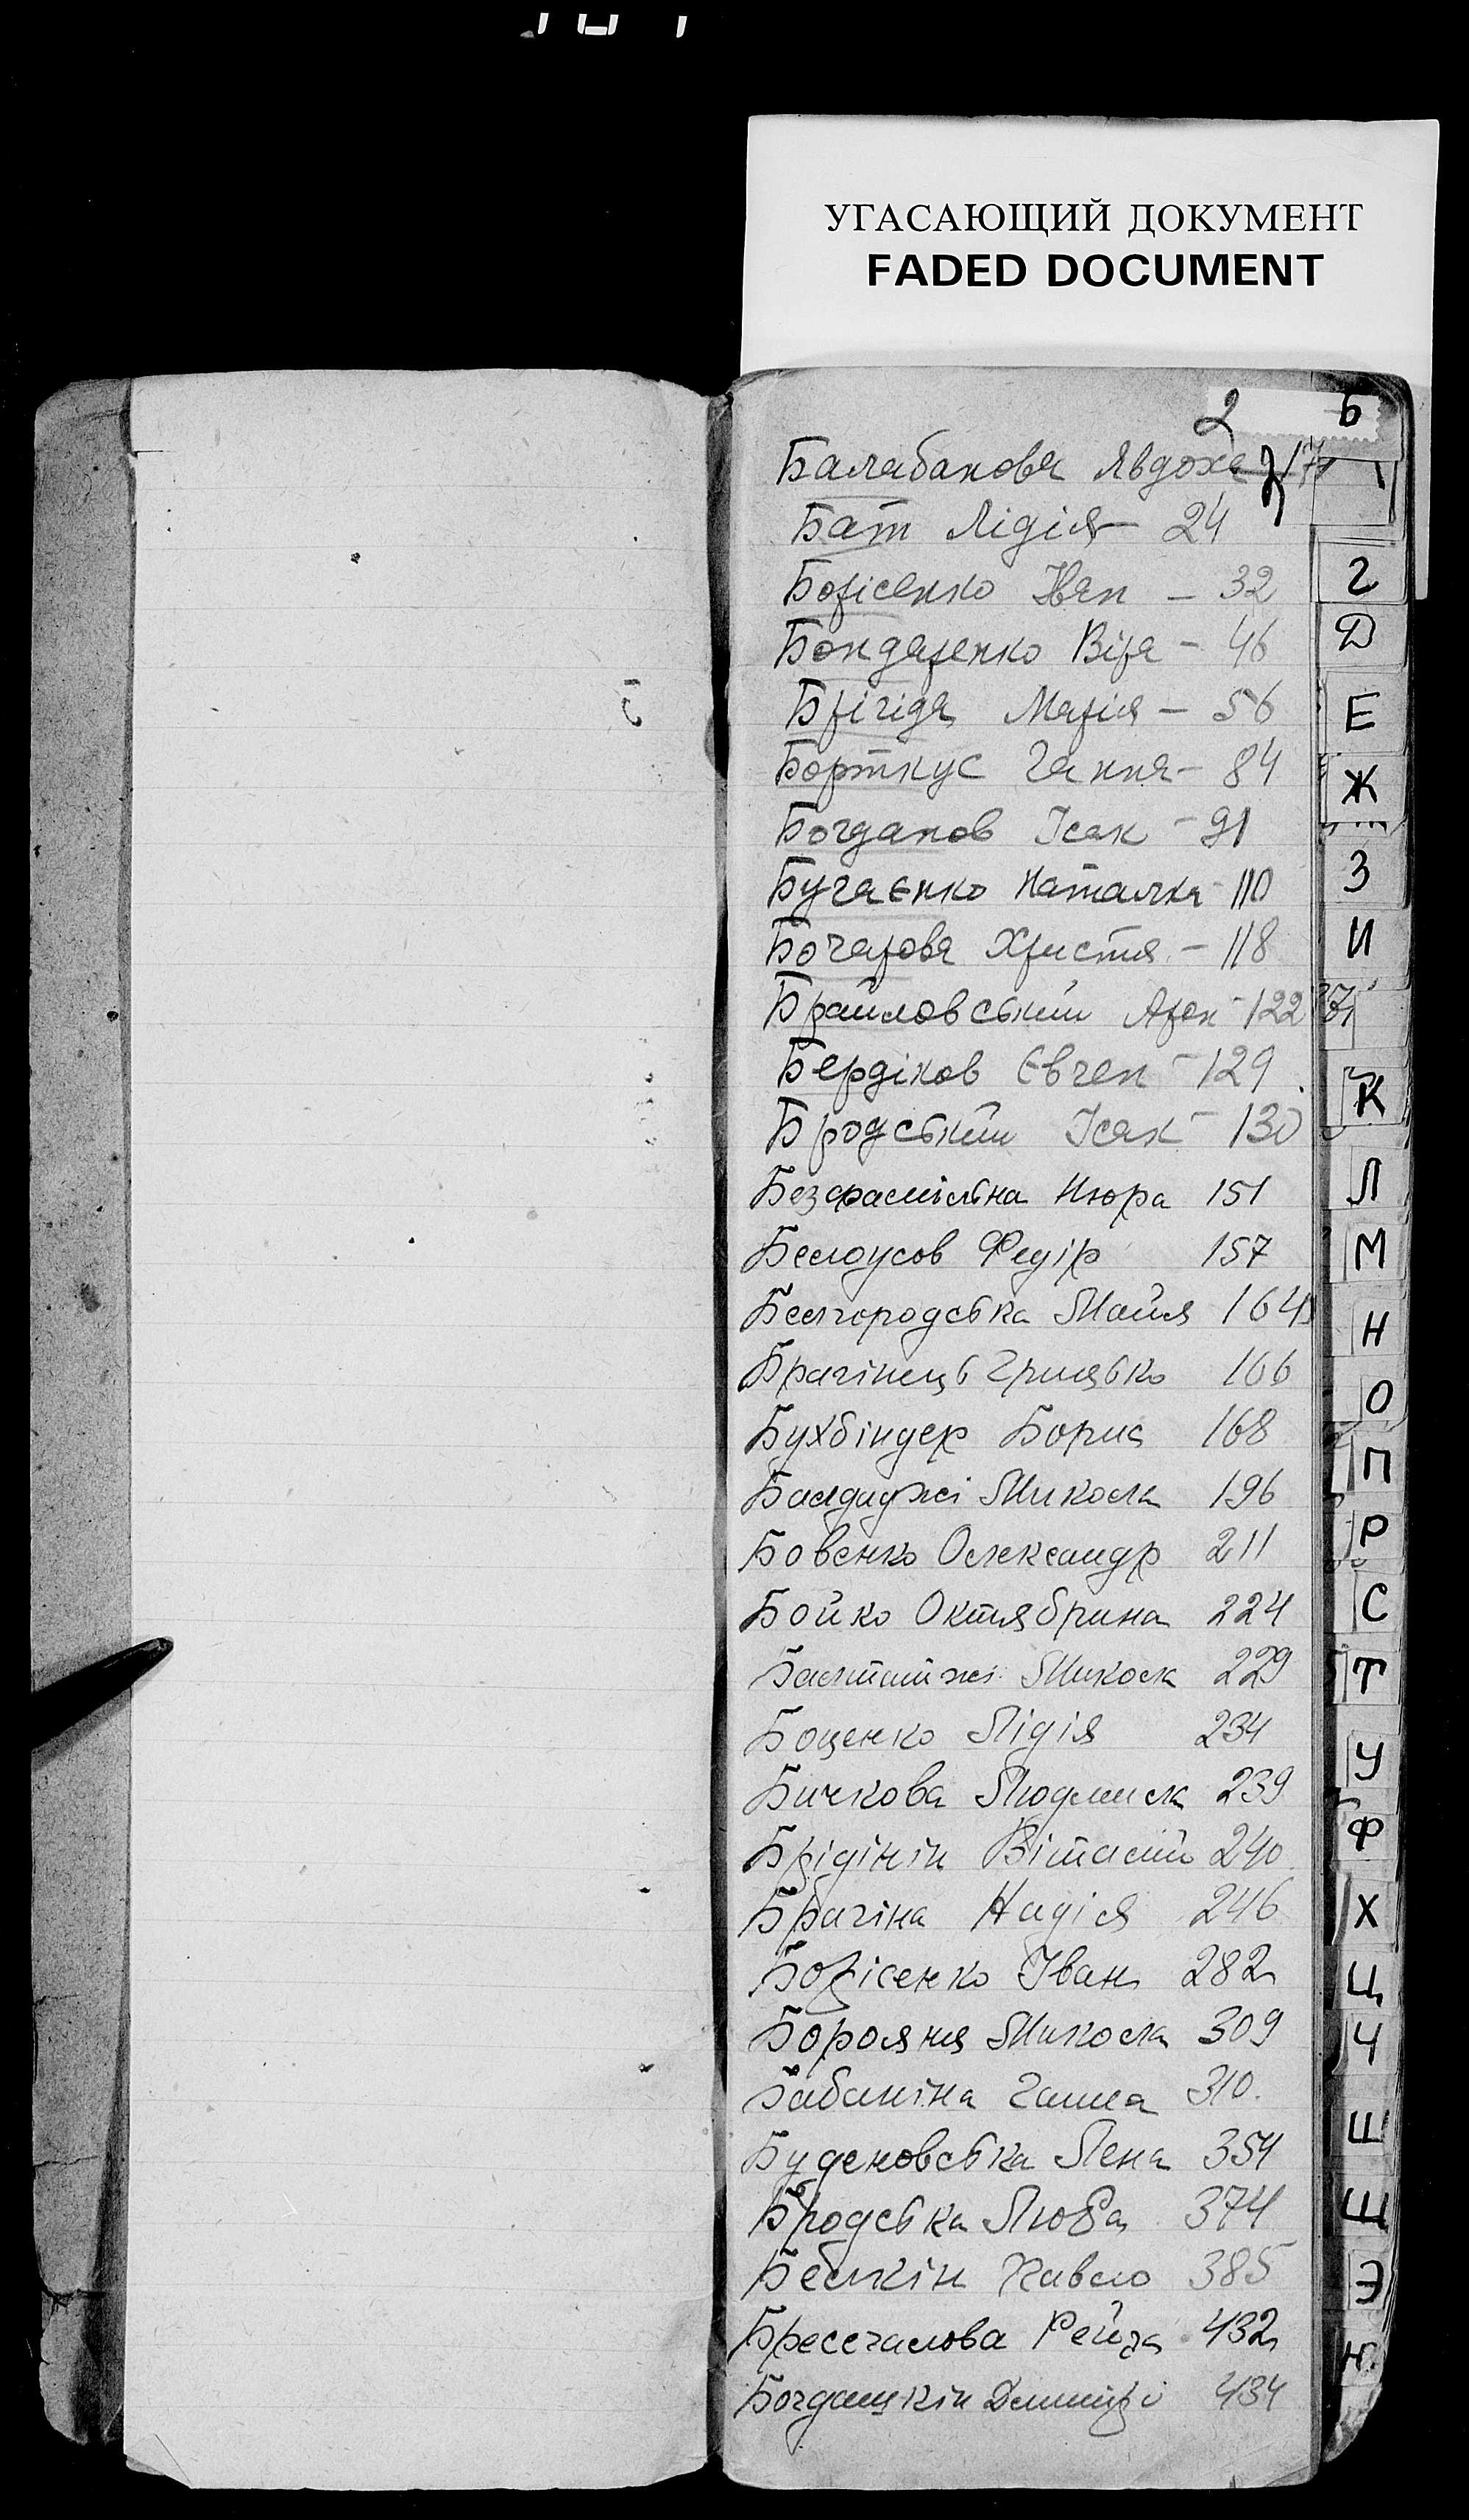 УГАСАЮЩИЙ ДОКУМЕНТ
FADED DOCUMENT
2 Б
Балабанова Явдоха
Бат Лідія - 24
Борісенко Іван - 32
Бондаренко Віра - 46
Брігіда Марія - 56
Борткус Ганна - 84
Богданов Ісак - 91
Бугаєнко Наталка - 110
Бочарова Христя - 118
Браиловський Арон - 122
Бердіков Євген - 129
Бродський Ісак - 130
Безфамільна Нюра 151
Белоусов Федір 157
Белгородська Майя 164
Брагінець Грицько 166
Бухбіндер Борис 168
Балдаджі Микола 196
Бовенко Олександр 211
Бойко Октябрина 224
Микола 229
Боценко Лідія 234
Бичкова Людмила 239
Брідінін Віталій 240
Брагіна Надія 246
Борісенко Іван 282
Бороляня Микола 309
Бабаніна Ганна 310.
Буденовська Лена 354
Бродська Люба 374
Белкін Павло 385
432
Богдашкін Дмитрі 434
Г
Д
Е
Ж
З
И
К
Л
М
Н
О
П
Р
С
Т
У
Ф
Х
Ц
Ч
Ш
Щ
Э